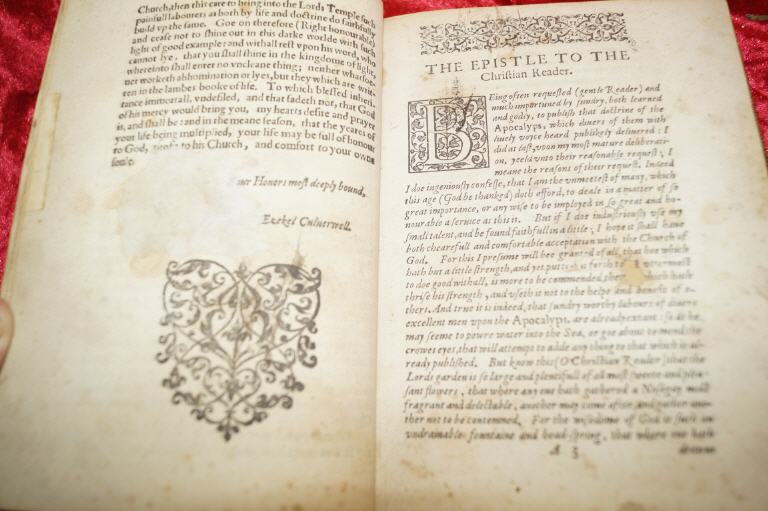 Church, then this care to bring into the Lords Temple such
painfull labourers as both by life and doctrine do faithfully
build up the same. Goe on therefore (Right honourable)
and cease not to shine out in this darke worlde with such
light of good example: and withall rest upon his word, who
cannot lye, that you shall shine in the kingdome of light,
whereinto shall enter no uncleane thing; neither whatsoe-
uer worketh abhomination or lyes, but they which are writ-
ten in the lambes booke of life. To which blessed inheri-
tance immortall, vndefiled, and that fadeth not, that God
of his mercy would bring you, my hearts desire and prayer
is, and shall be: and in the meane season, that the yeares of
your life being multiplied, your life may be full of honour
to God, to his Church, and comfort to your owne
soule.
Honors most deeply bound,
Ezekel Culuerwell.
THE EPISTLE TO THE
Christian Reader.
BEing often requested (gentle Reader) and
much importuned by sundry, both learned
and godly, to publish that doctrine of the
Apocalyps, which diuers of them with
liuely voyce heard publikely deliuered: I
did at last, vpon my most mature deliberati-
on, yeeld vnto their reasonable request; I
meane the reasons of their request. Indeed
I doe ingeniously confesse, that I am the vnmeetest of many, which
this age (God be thanked) doth afford, to deale in a matter of so
great importance, or any wise to be imployed in so great and ho-
nourable a seruice as this is. But if I doe industriously vse my
small talent, and be found faithfull in a little; I hope it shall haue
both chearefull and comfortable acceptation with the Church of
God. For this I presume will bee granted of all, that hee which
hath but a little strength, and yet putteth it forth to
to doe good withall, is more to be commended, which hath
thrise his strength, and vseth it not to the helpe and benefit of o-
thers. And true it is indeed, that sundry worthy labours of diuers
excellent men vpon the Apocalyps, are already extant: so as he
may seeme to powre water into the Sea, or goe about to mend the
crowes eyes, that will attempt to adde any thing to that which is al-
ready published. But know this (O Christian Reader) that the
Lords garden is so large and plentifull of all most sweete and plea-
sant flowers, that where any one hath gathered a Nosegay most
fragrant and delectable, another may come after, and gather ano-
ther not to be contemned. For the wisedome of God is such an
vndrainable fountaine and head-spring, that where one hath
A 3